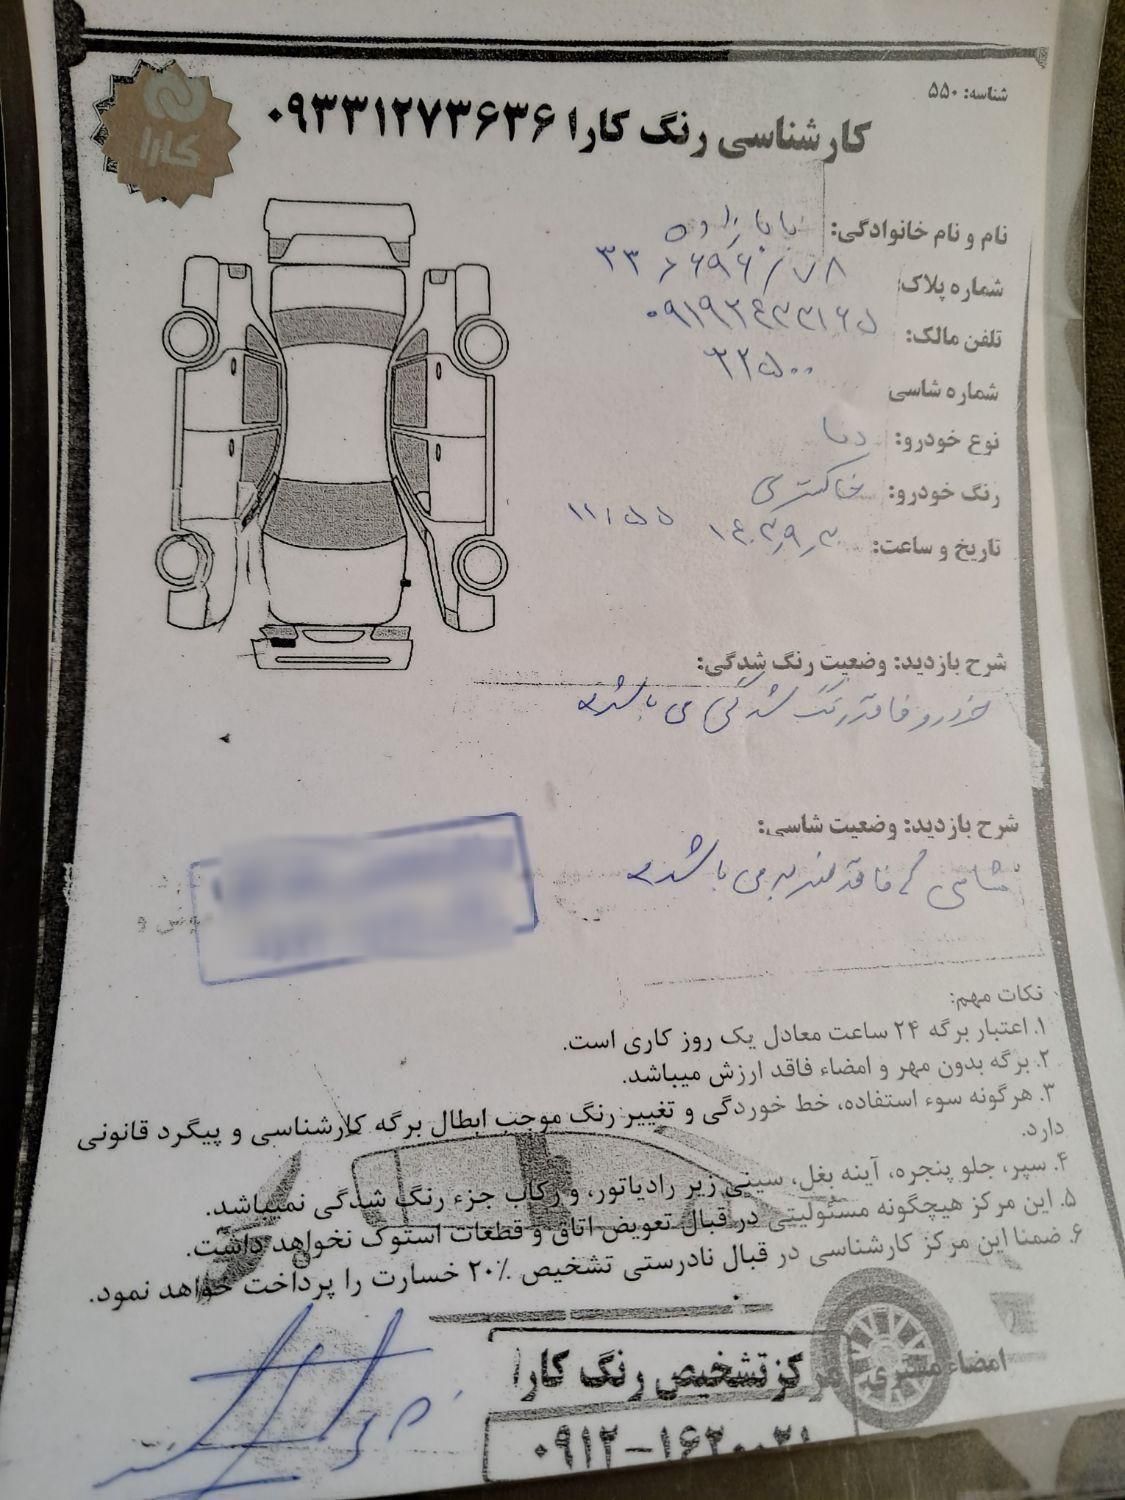 شناسه: ۵۵۰
کارا
کارشناسی رنگ کارا ۰۹۳۳۱۲۷۳۶۳۶
نام و نام خانوادگی: بابازاده
شماره پلاک:
تلفن مالک:
شماره شاسی ۳۲۵۰۰
نوع خودرو: دنا
رنگ خودرو: خاکستری
تاریخ و ساعت: ۱۴۰۳٫۹٫۳ ۱۱:۵۵
شرح بازدید: وضعیت رنگ شدگی:
خودرو فاقد رنگ شدگی می باشد
شرح بازدید: وضعیت شاسی:
شاسی ها فاقد ضربه می باشد
نکات مهم:
۱. اعتبار برگه ۲۴ ساعت معادل یک روز کاری است.
۲. برگه بدون مهر و امضاء فاقد ارزش میباشد.
۳. هرگونه سوء استفاده، خط خوردگی و تغییر رنگ موجب ابطال برگه کارشناسی و پیگرد قانونی
دارد.
۴. سپر، جلو پنجره، آینه بغل، سینی زیر رادیاتور، و رکاب جزء رنگ شدگی نمیباشد.
۵. این مرکز هیچگونه مسئولیتی در قبال تعویض اتاق و قطعات استوک نخواهد داشت.
۶. ضمنا این مرکز کارشناسی در قبال نادرستی تشخیص ۲۰٪ خسارت را پرداخت خواهد نمود.
امضاء مشتری
مرکز تشخیص رنگ کارا
۰۹۱۲-۱۶۲۰۰۲۱